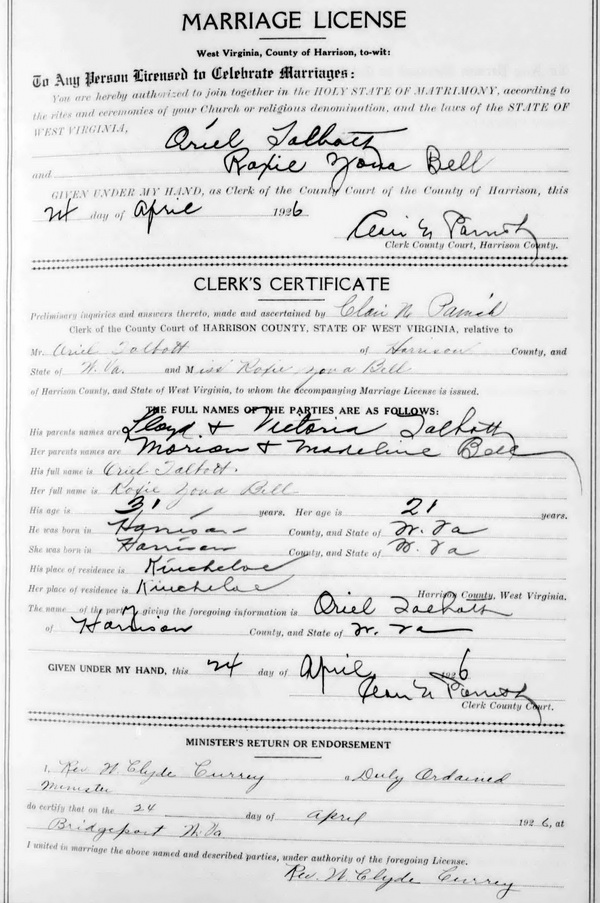 MARRIAGE LICENSE
West Virginia, County of Harrison, to-wit:
To Any Person Licensed to Celebrate Marriages:
You are hereby authorized to join together in the HOLY STATE OF MATRIMONY, according to
the rites and ceremonies of your Church or religious denomination, and the laws of the STATE OF
WEST VIRGINIA,
Oriel Talbott
and Roxie Yova Bell
GIVEN UNDER MY HAND, as Clerk of the County Court of the County of Harrison, this
24 day of April 1926
Clair N. Parrish
Clerk County Court, Harrison County.
CLERK'S CERTIFICATE
Preliminary inquiries and answers thereto, made and ascertained by Clair N. Parrish
Clerk of the County Court of HARRISON COUNTY, STATE OF WEST VIRGINIA, relative to
Mr. Oriel Talbott of Harrison County, and
State of W. Va. and Miss Roxie Yova Bell
of Harrison County, and State of West Virginia, to whom the accompanying Marriage License is issued.
THE FULL NAMES OF THE PARTIES ARE AS FOLLOWS:
His parents names are Lloyd & Victoria Talbott
Her parents names are Morion & Madeline Bell
His full name is Oriel Talbott.
Her full name is Roxie Yova Bell
His age is 31 years. Her age is 21 years.
He was born in Harrison County, and State of W. Va
She was born in Harrison County, and State of W. Va
His place of residence is Kincheloe
Her place of residence is Kincheloe Harrison County, West Virginia.
The name of the party giving the foregoing information is Oriel Talbott
of Harrison County, and State of W. Va
GIVEN UNDER MY HAND, this 24 day of April 1926
Clair N. Parrish
Clerk County Court.
MINISTER'S RETURN OR ENDORSEMENT
I, Rev. W. Clyde Currey a Duly Ordained
Minister
do certify that on the 24 day of April 1926, at
Bridgeport W. Va.
I united in marriage the above named and described parties, under authority of the foregoing License.
Rev. W. Clyde Currey